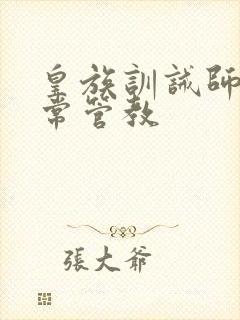 皇族訓誡師
常管教
張大爺